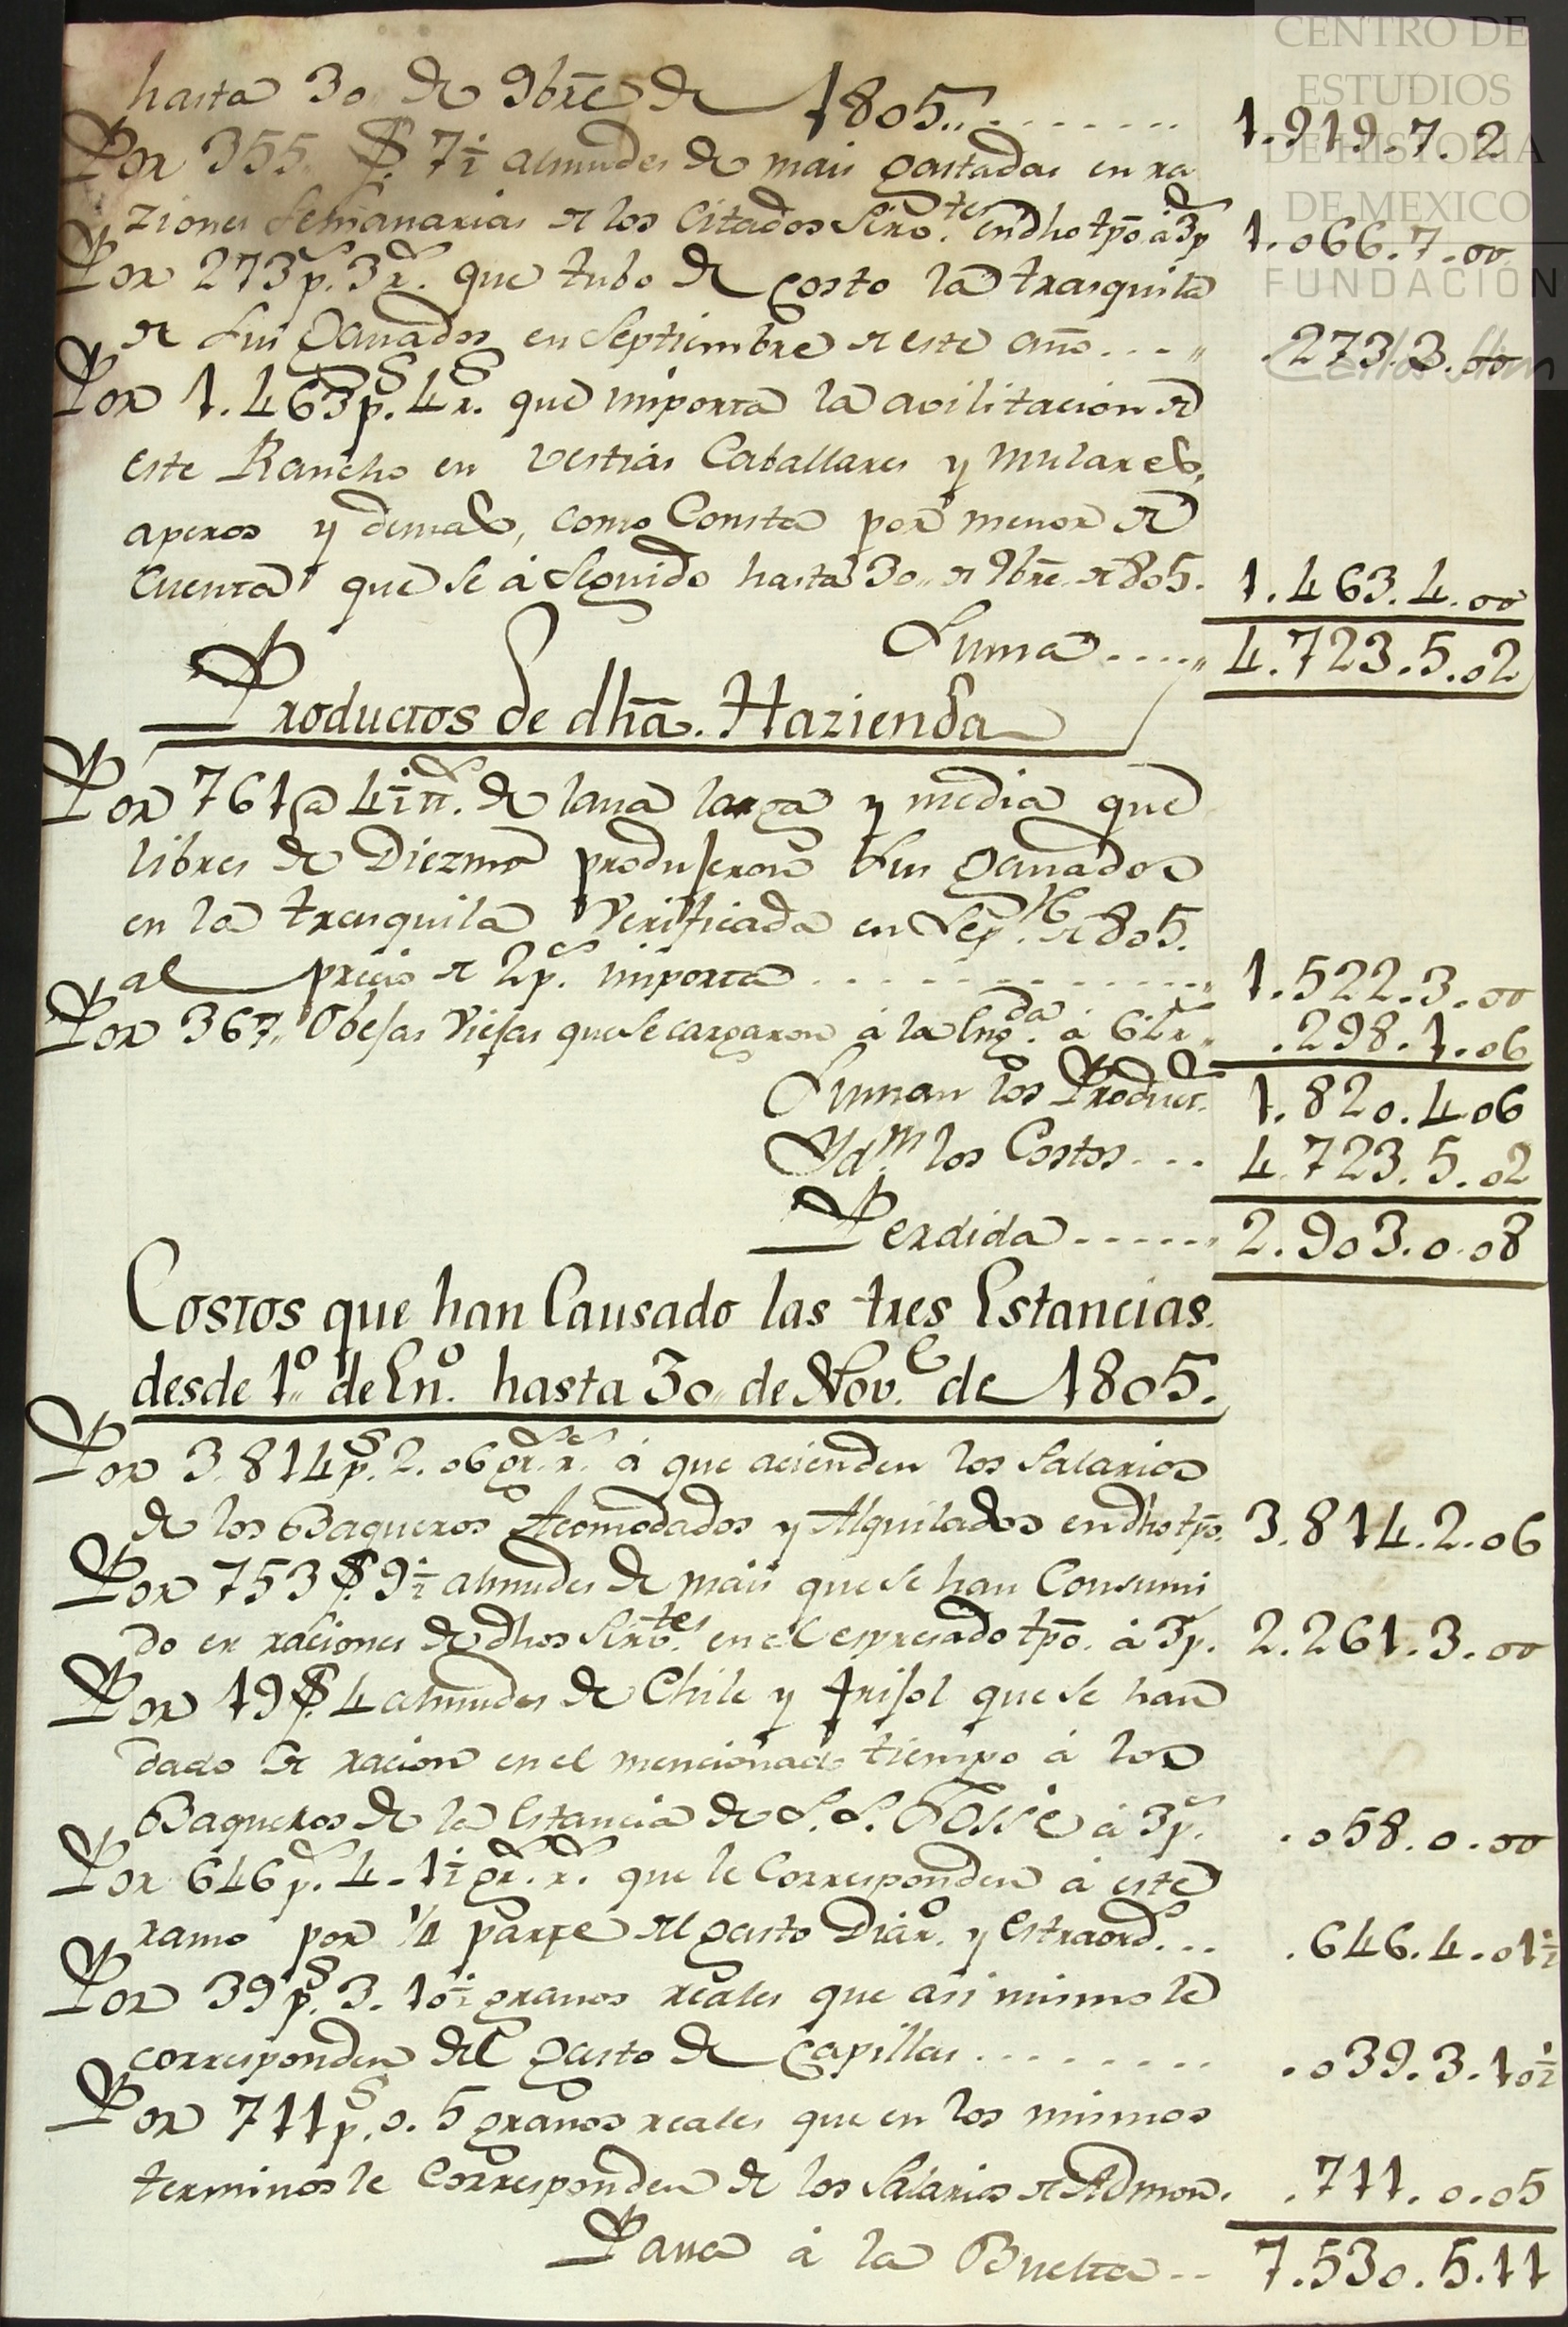 CENTRO DE
ESTUDIOS
DE HISTORIA
DE MEXICO
FUNDACIÓN
Carlos Slim
hasta 30 de 9bre. de 1805.......... 1.919.7.2
Por 355 f. 7½ almudes de mais gastadas en ra
ziones Semanarias de los Citados Sirvtes. en dho tpo. á 3p 1.066.7.00
Por 273ps. 3rs. que tubo de Costo la trasquila
de sus Ganados en Septiembre de este año.... .273.3.00
Por 1.463ps. 4rs. que importa la avilitacion de
este Rancho en vestias Caballares y mulares,
aperos y demas, como Consta por menor de
Cuenta que se á Seguido hasta 30,, de 9bre. de 805. 1.463.4.00
Suma..... 4.723.5.02
Productos de dha. Hazienda
Por 761@ 4½ tt. de lana larga y media que
libres de Diezmo produjeron sus Ganados
en la trasquila Verificada en Sepe. de 805.
al precio de 2ps. importa............. 1.522.3.00
Por 367,, Obejas Viejas que se cargaron á la Engda. á 6½rs .298.1.06
Suman los Product. 1.820.4.06
Ydm. los Costos... 4.723.5.02
Perdida...... 2.903.0.08
Costos que han Causado las tres Estancias
desde 1o. de Eno. hasta 30,, de Nove. de 1805.
Por 3.814ps. 2.06 gs. rs. á que acienden los Salarios
de los Baqueros Acomodados y Alquilados en dho tpo. 3.814.2.06
Por 753 f. 9½ almudes de mais que se han Consumi
do en raciones de dhos Sirvtes. en el espresado tpo. á 3p. 2.261.3.00
Por 19 f. 4 almudes de Chile y frisol que se han
dado de racion en el mencionado tiempo á los
Baqueros de la Estancia de S. S. Josse á 3ps. .058.0.00
Por 646ps. 4-1½ gs. rs. que le Corresponden á este
ramo por ¼ parte del gasto Diaro. y Estraord... .646.4.01½
Por 39ps. 3. 10½ granos reales que asi mismo le
corresponden del gasto de Capillas......... .039.3.10½
Por 711ps. 0. 5 granos reales que en los mismos
terminos le Corresponden de los Salarios de Admon. .711.0.05
Passa á la Buelta.. 7.530.5.11